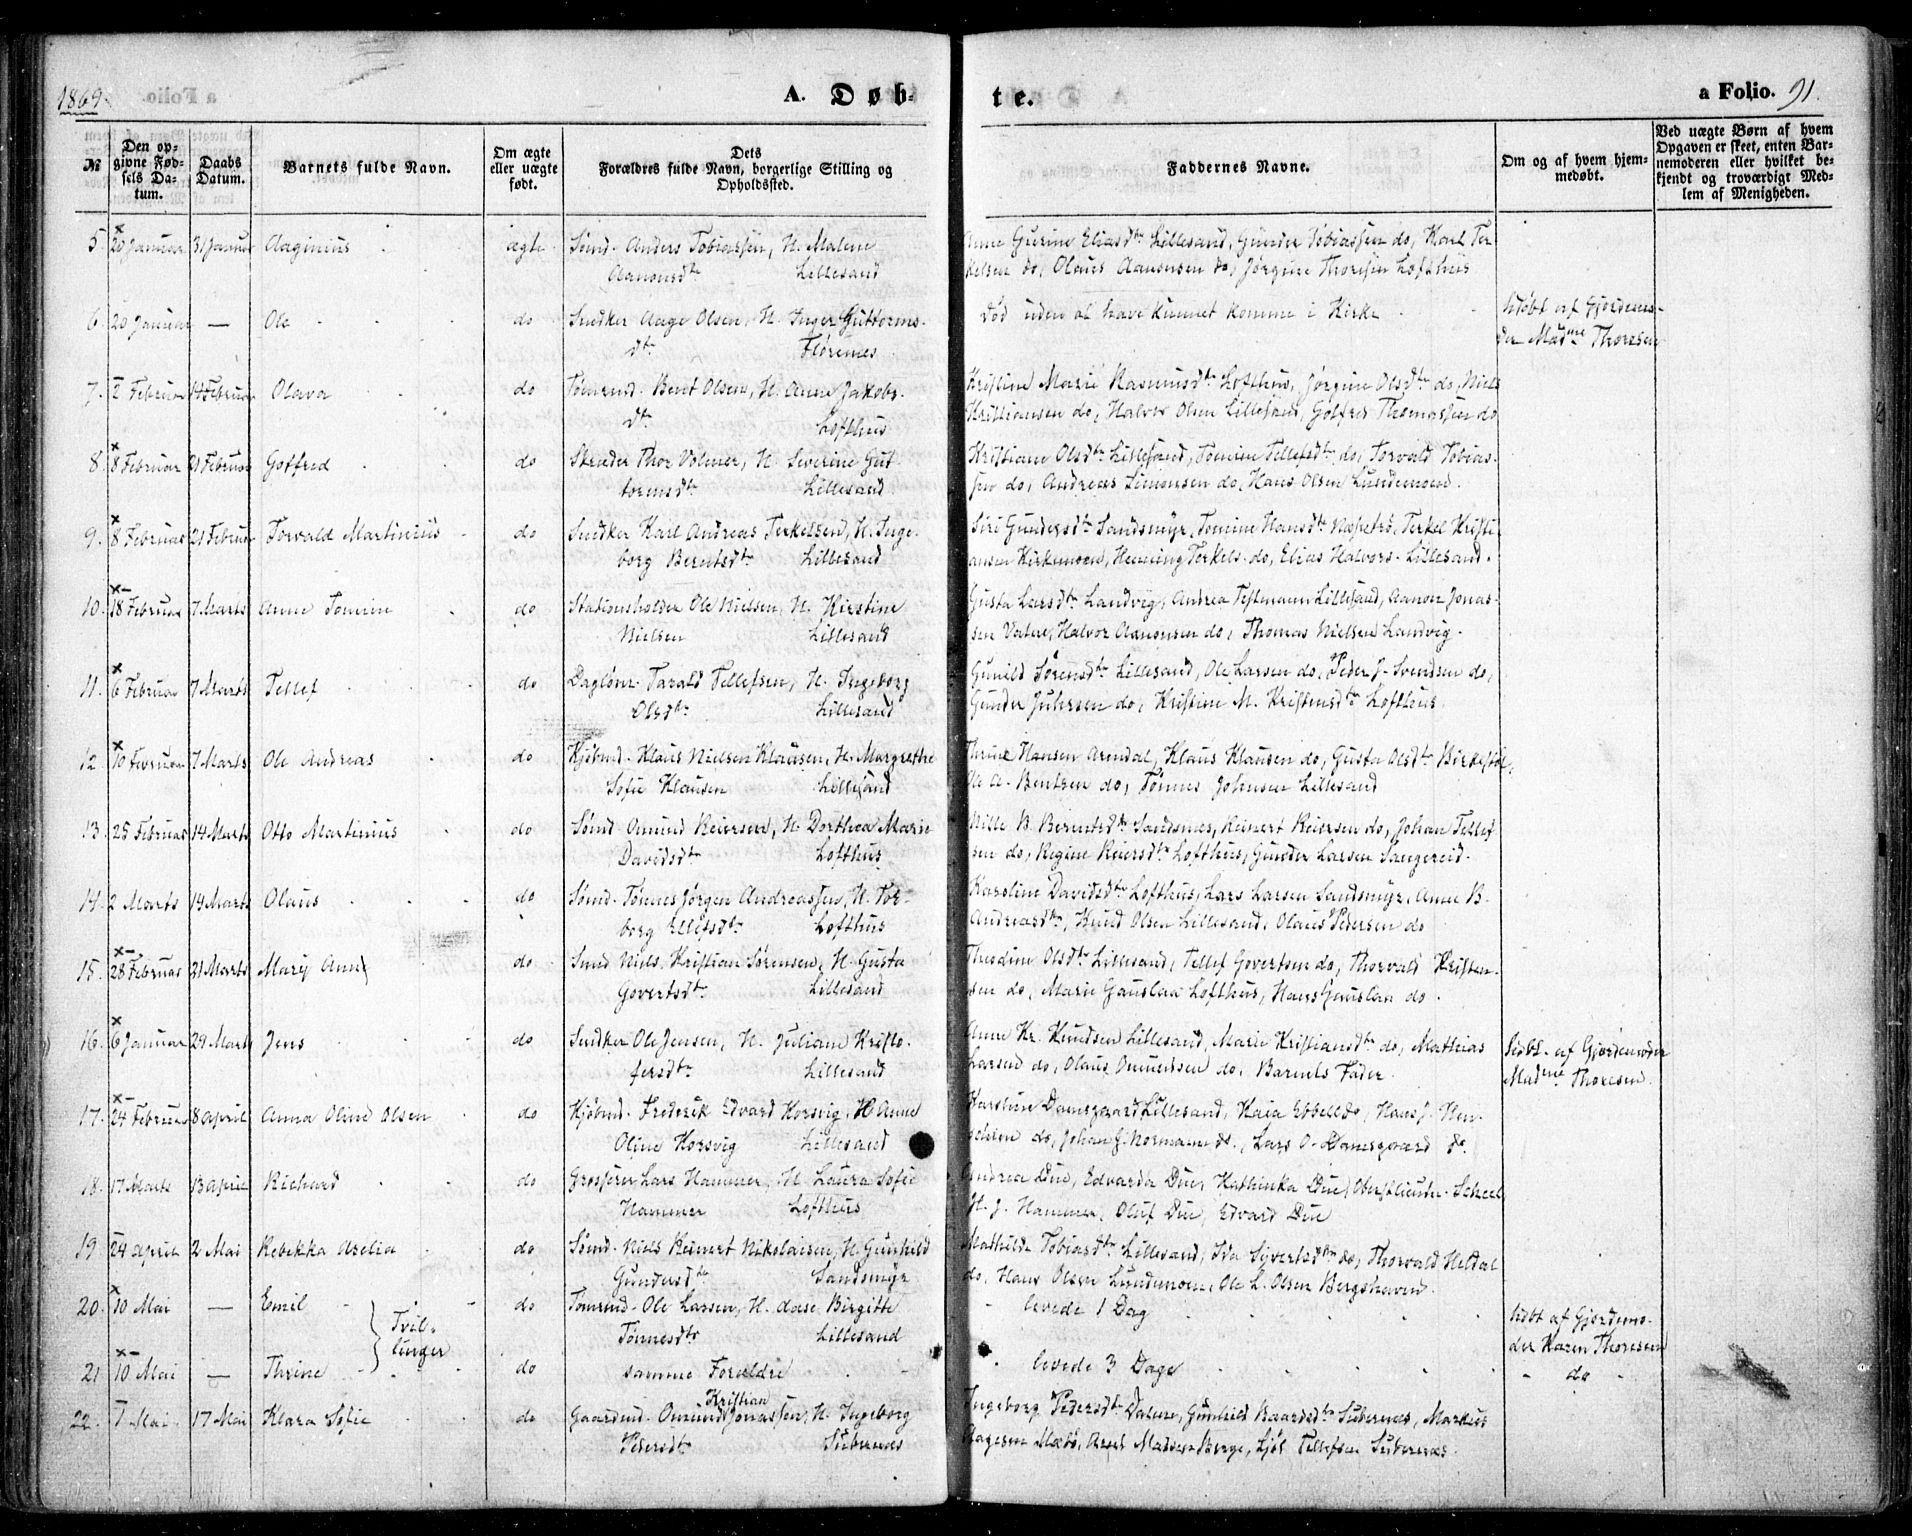 1869.
A. Døbte.
a Folio. 91.
№
Den opgivne Fødsels Datum.
Daabs Datum.
Barnets fulde Navn.
Om ægte eller uægte født.
Dets Forældres fulde Navn, borgerlige Stilling og Opholdssted.
Faddernes Navne.
Om og af hvem hjemmedøbt.
Ved uægte Børn af hvem Opgaven er skeet, enten Barnemoderen eller hvilket bekjendt og troværdigt Medlem af Menigheden.
5. 20 Januar 31 Januar Aaginius ægte Sømd. Anders Tobiassen, H. Malene Anne Gurine Eliasdtr Lillesand, Gunder Tobiassen do, Karl Ter-
Aanonsdtr Lillesand kelsen do, Olaus Aanonsen do, Jørgine Thoresen Lofthus
6. 20 Januar — Ole do Snedker Aage Olsen, H. Inger Guttorms- Død uden at have kunnet komme i Kirke hdøbt af Gjordemo-
dtr Florenes der Madme Thoresen
7. 2 Februar 14 Februar Olava do Tømmd. Bent Olsen, H. Anne Jakobs- Kristine Marie Rasmusdtr Lofthus, Jørgine Olsdtr do, Niels
dtr Lofthus Kristiansen do, Halvor Olsen Lillesand, Gotfred Thomassen do
8. 8 Februar 21 Februar Gotfred do Skræder Thor Volmer, H. Severine Gut- Kristiane Olsdtr Lillesand, Tomine Tellefsdtr do, Torvald Tobias-
tormsdtr Lillesand sen do, Andreas Simonsen do, Hans Olsen Lundemoen.
9. 8 Februar 21 Februar Torvald Martinius do Snedker Karl Andreas Terkelsen, H. Inge- Siri Gundersdtr Sandsmyr, Tomine Hansdtr, Terkel Kristi-
borg Berntsdtr Lillesand ansen Kirkemoen, Henning Terkels. do, Elias Halvors. Lillesand.
10. 18 Februar 7 Marts Anne Tomine do Stationsholder Ole Nielsen, H. Kirstine Gusta Larsdtr Landvig, Andrea Testmann Lillesand, Aanon Jonas-
Nielsen Lillesand sen, Halvor Aanonsen do, Thomas Nielsen Landvig.
11. 6 Februar 7 Marts Tellef do Daglønr. Tarald Tellefsen, H. Ingeborg Gunild Sørensdtr Lillesand, Ole Larsen do, Peder J. Svendsen do,
Olsdtr Lillesand Gunder Juhlsen do, Kristine M. Kristensdtr Lofthus.
12. 10 Februar 7 Marts Ole Andreas do Kjøbmd. Klaus Nielsen Klausen, H. Margrethe Thrine Hansen Arendal, Klaus Klausen do, Gusta Olsdtr Birkestøl,
Sofie Klausen Lillesand Ole A. Bentsen do, Tønnes Johnsen Lillesand
13. 25 Februar 14 Marts Otto Martinius do Sømd. Omund Reiersen, H. Dorthea Marie Nille B. Berentsdtr Sandsnes, Reinert Reiersen do, Johan Tellef-
Davidsdtr Lofthus sen do, Regine Reiersdtr Lofthus, Gunder Larsen Sangereid.
14. 2 Marts 14 Marts Olaus do Sømd. Tønnes Jørgen Andreassen, H. Tor- Karoline Davidsdtr Lofthus, Lars Larsen Sandsmyr, Anne B.
borg Ellefsdtr Lofthus Andreasdtr, Knud Olsen Lillesand, Olaus Pedersen do
15. 28 Februar 21 Marts Mary Anne do Smed Niels Kristian Sørensen, H. Gusta Theodine Olsdtr Lillesand, Tellef Govertsen do, Thorvald Kristen-
Govertsdtr. Lillesand sen do, Marie Gauslaa Lofthus, Hans Gauslaa do.
16. 6 Januar 29 Marts Jens do Snedker Ole Jensen, H. Juliane Kristo- Anne Kr. Knudsen Lillesand, Marie Kristiansdtr do, Mathias hdøbt. af Gjordemoder
fersdtr Lillesand Larsen do, Olaus Omundsen do, Barnets Fader. Madme Thoresen
17. 24 Februar 8 April Anna Oline Olsen do Kjøbmd. Frederik Edvard Horsvig, H. Anne Damsgaard Lillesand, Kaia Ebbell do, Hans J. Hen-
Oline Horsvig Lillesand schien do, Johan G. Normann do., Lars O. Damsgaard do.
18. 17 Marts 13 April Richard do Grosserer Lars Hammer, H. Laura Sofie Andrea Due, Edvarda Due, Kathinka Due, Oberstlieutn. Scheel
Hammer Lofthus H. J. Hammer, Oluf Due, Edvard Due
19 24 April 2 Mai Rebekka Aselia do Sømd. Niels Reinert Nikolaisen, H. Gunhild Mathilde Tobiasdtr Lillesand, Ida Syvertsdtr do, Thorvald Heldal
Gundersdtr Sandsmyr do, Hans Olsen Lundemoen, Ole L. Olsen Bergshaven.
20. 10 Mai — Emil do Tømmd. Ole Larsen, H. Aase Birgitte levede 1 Dag hdøbt af Gjordemo-
Tvil-
linger
Tønnesdtr Lillesand der Karen Thoresen
21 10 Mai — Thrine do samme Forældre levede 3 Dage do
22. 7 Mai. 17 Mai Klara Sofie do Gaardmd. Omund Kristian Jonassen, H. Ingeborg Ingeborg Pedersdtr, Gunhild Baardsdtr Suberenes, Markus
Pedersdtr Suberenes Aagesen Mæbø, Mads Berge, Sjøl Tellefsen Suberenes.